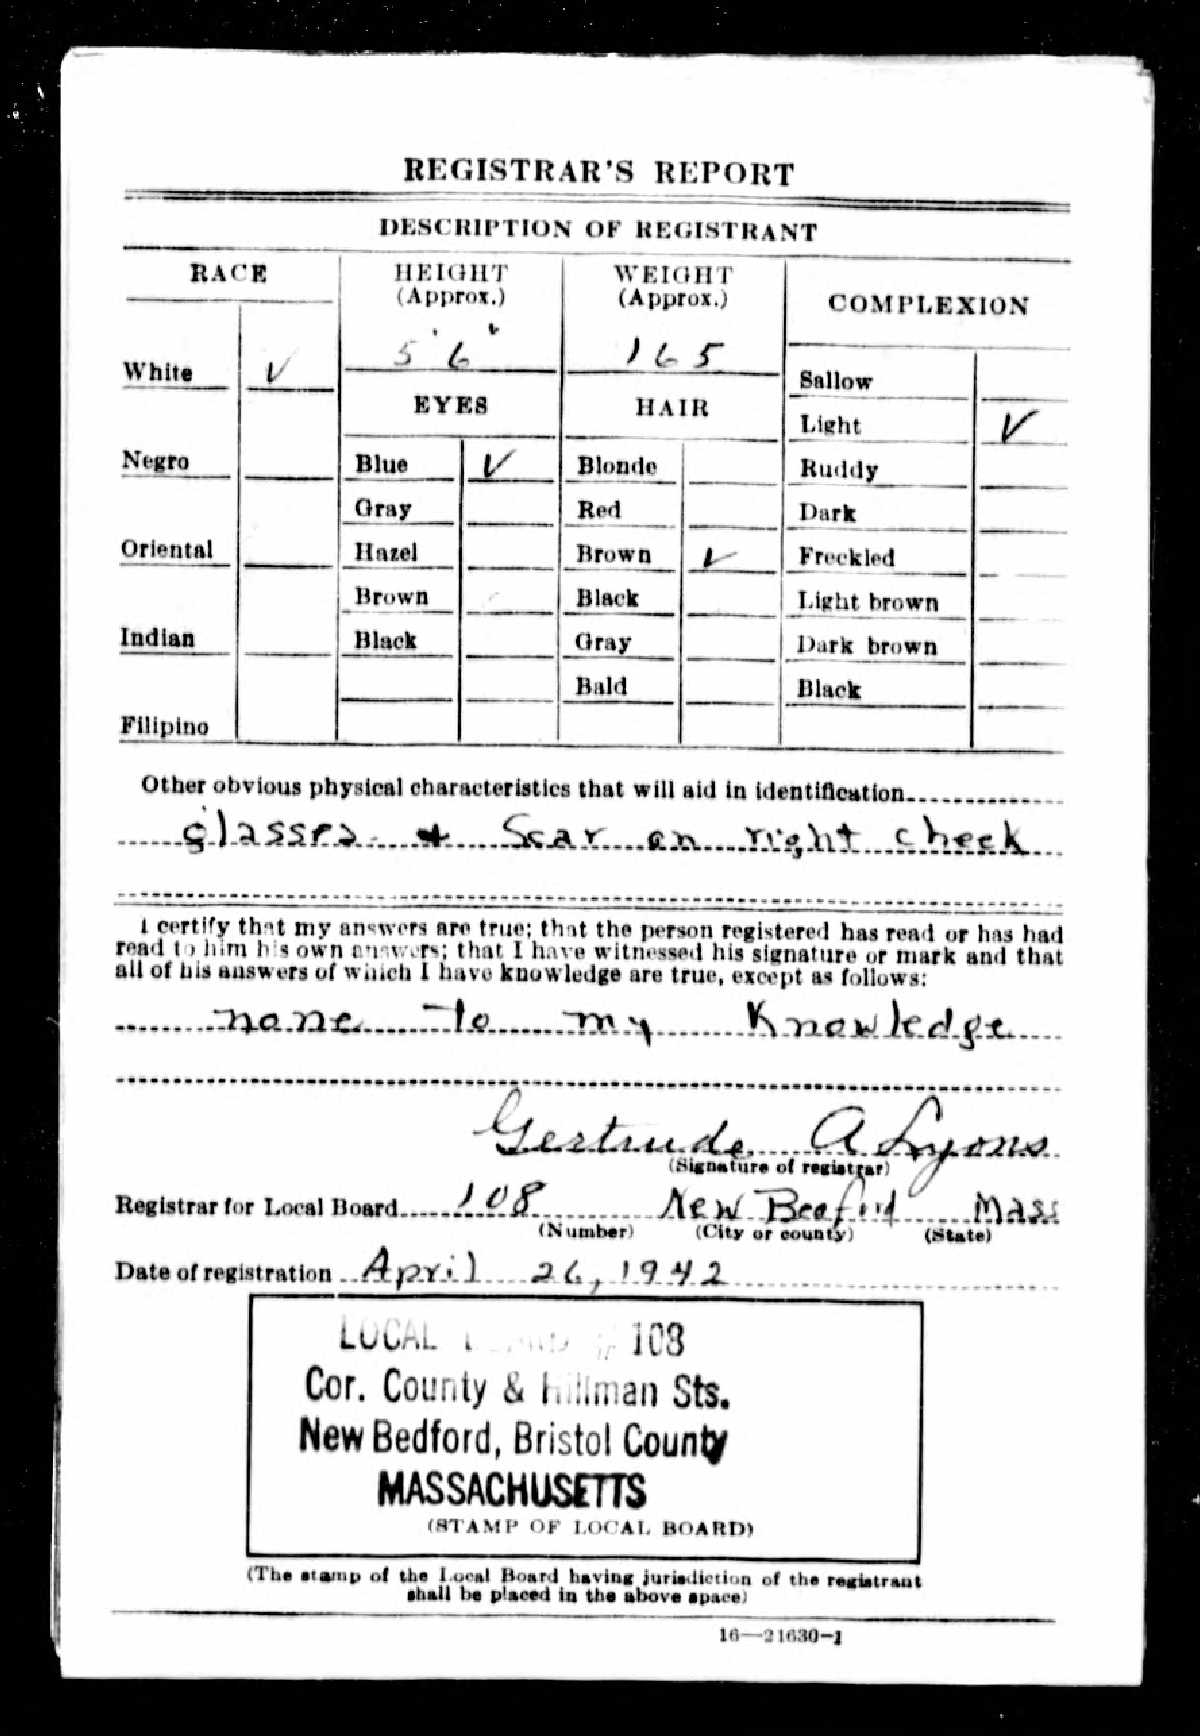 REGISTRAR'S REPORT
DESCRIPTION OF REGISTRANT
RACE
HEIGHT
(Approx.)
WEIGHT
(Approx.)
COMPLEXION
5' 6"
165
White ✓
EYES
HAIR
Sallow
Light ✓
Negro
Blue ✓
Blonde
Ruddy
Gray
Red
Dark
Oriental
Hazel
Brown ✓
Freckled
Brown
Black
Light brown
Indian
Black
Gray
Dark brown
Bald
Black
Filipino
Other obvious physical characteristics that will aid in identification
glasses + Scar on right cheek
I certify that my answers are true; that the person registered has read or has had
read to him his own answers; that I have witnessed his signature or mark and that
all of his answers of which I have knowledge are true, except as follows:
none to my Knowledge
Gertrude A Lyons
(Signature of registrar)
Registrar for Local Board 108 New Bedford Mass
(Number) (City or county) (State)
Date of registration April 26, 1942
LOCAL BOARD # 108
Cor. County & Hillman Sts.
New Bedford, Bristol County
MASSACHUSETTS
(STAMP OF LOCAL BOARD)
(The stamp of the Local Board having jurisdiction of the registrant
shall be placed in the above space)
16—21630-1